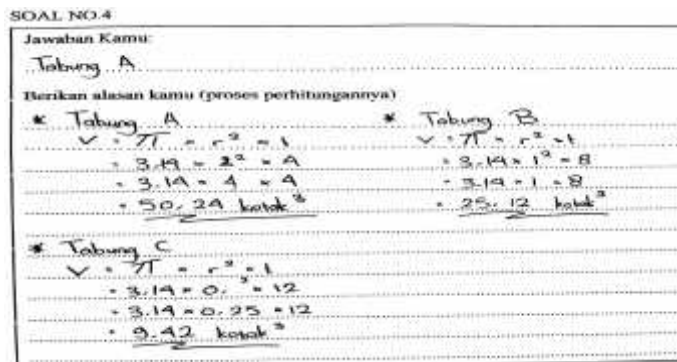 SOAL NO.4
Jawaban Kamu:
Tabung A
Berikan alasan kamu (proses perhitungannya)
* Tabung A
V = π × r² × t
= 3.14 × 2² × 4
= 3.14 × 4 × 4
= 50,24 kotak³
* Tabung B
V = π × r² × t
= 3.14 × 1² × 8
= 3.14 × 1 × 8
= 25,12 kotak³
* Tabung C
V = π × r² × t
= 3.14 × 0. ² × 12
= 3.14 × 0.25 × 12
= 9.42 kotak³